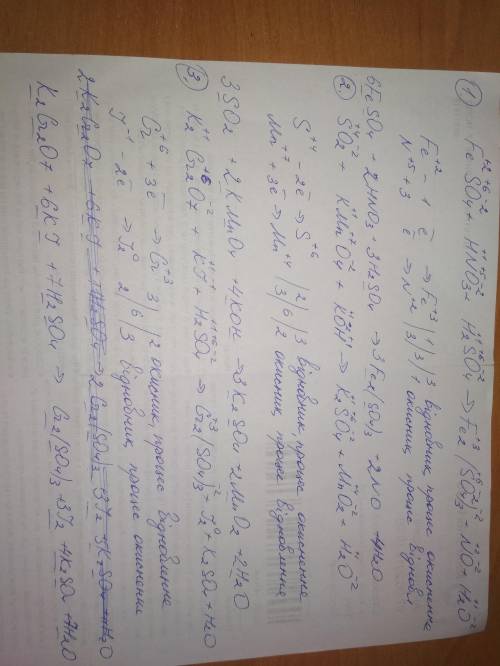 ① Fe⁺²S⁺⁶O₄⁻² + H⁺¹N⁺⁵O₃⁻² + H₂⁺¹S⁺⁶O₄⁻² → Fe₂⁺³(S⁺⁶O₄⁻²)₃ + N⁺²O⁻² + H₂⁺¹O⁻²
Fe⁺² - 1ē → Fe⁺³ |1|3|3 відновник, процес окислення
N⁺⁵ + 3ē → N⁺² |3|3|1 окисник, процес відновл
6FeSO₄ + 2HNO₃ + 3H₂SO₄ → 3Fe₂(SO₄)₃ + 2NO + 4H₂O
② S⁺⁴O₂⁻² + K⁺¹Mn⁺⁷O₄⁻² + K⁺¹O⁻²H⁺¹ → K₂⁺¹S⁺⁶O₄⁻² + Mn⁺⁴O₂⁻² + H₂⁺¹O⁻²
S⁺⁴ - 2ē → S⁺⁶ |2|6|3 відновник, процес окислення
Mn⁺⁷ + 3ē → Mn⁺⁴ |3|6|2 окисник, процес відновлення
3SO₂ + 2KMnO₄ + 4KOH → 3K₂SO₄ + 2MnO₂ + 2H₂O
③ K₂⁺¹Cr₂⁺⁶O₇⁻² + K⁺¹J⁻¹ + H₂⁺¹S⁺⁶O₄⁻² → Cr₂⁺³(SO₄)₃ + J₂⁰ + K₂SO₄ + H₂O
Cr⁺⁶ + 3ē → Cr⁺³ 3| |2 окисник, процес відновлення
J⁻¹ - 2ē → J₂⁰ 2|6|3 відновник, процес окислення
K₂Cr₂O₇ + 6KJ + 7H₂SO₄ → Cr₂(SO₄)₃ + 3J₂ + 4K₂SO₄ + 7H₂O